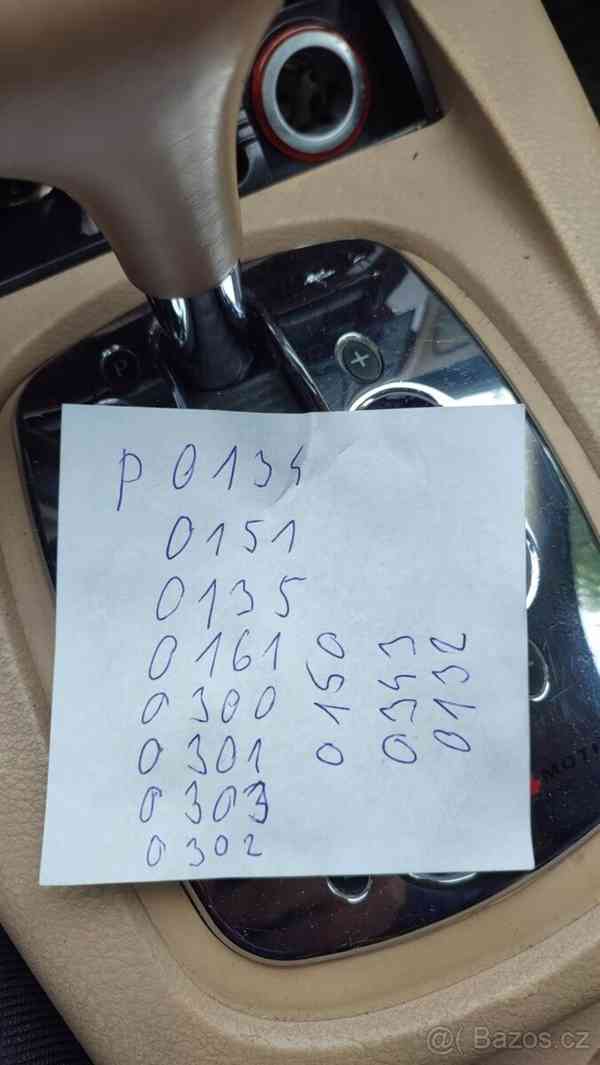 P 0134
0151
0135
0161
0300
0301
0303
0302
0150
0343
0132
P
+
MOTI
@( Bazos.cz